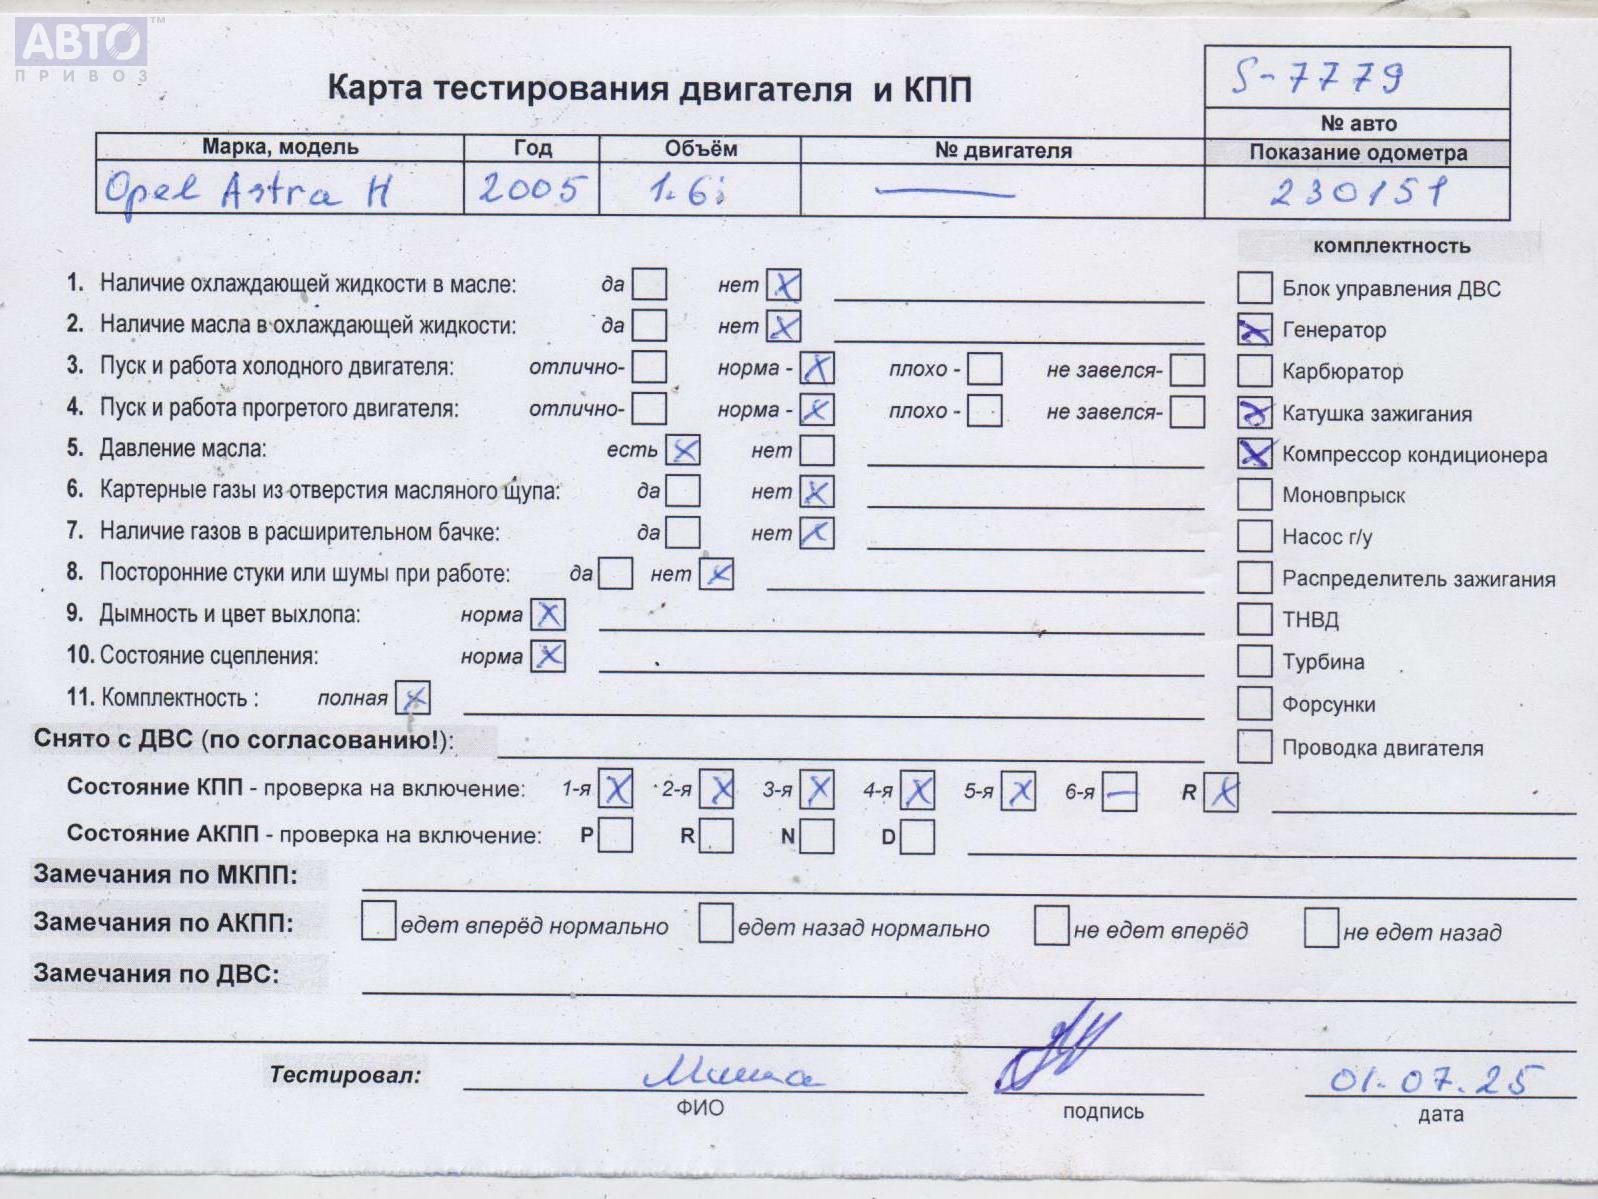 АВТО ™
ПРИВОЗ
Карта тестирования двигателя и КПП
S-7779
№ авто
Марка, модель Год Объём № двигателя Показание одометра
Opel Astra H 2005 1.6i — 230151
комплектность
1. Наличие охлаждающей жидкости в масле: да нет X
Блок управления ДВС
2. Наличие масла в охлаждающей жидкости: да нет X
X Генератор
3. Пуск и работа холодного двигателя: отлично- норма - X плохо - не завелся-
Карбюратор
4. Пуск и работа прогретого двигателя: отлично- норма - X плохо - не завелся-
X Катушка зажигания
5. Давление масла: есть X нет
X Компрессор кондиционера
6. Картерные газы из отверстия масляного щупа: да нет X
Моновпрыск
7. Наличие газов в расширительном бачке: да нет X
Насос г/у
8. Посторонние стуки или шумы при работе: да нет X
Распределитель зажигания
9. Дымность и цвет выхлопа: норма X
ТНВД
10. Состояние сцепления: норма X
Турбина
11. Комплектность : полная X
Форсунки
Снято с ДВС (по согласованию!):
Проводка двигателя
Состояние КПП - проверка на включение: 1-я X 2-я X 3-я X 4-я X 5-я X 6-я — R X
Состояние АКПП - проверка на включение: P R N D
Замечания по МКПП:
Замечания по АКПП: едет вперёд нормально едет назад нормально не едет вперёд не едет назад
Замечания по ДВС:
Тестировал: Миша 01.07.25
ФИО подпись дата